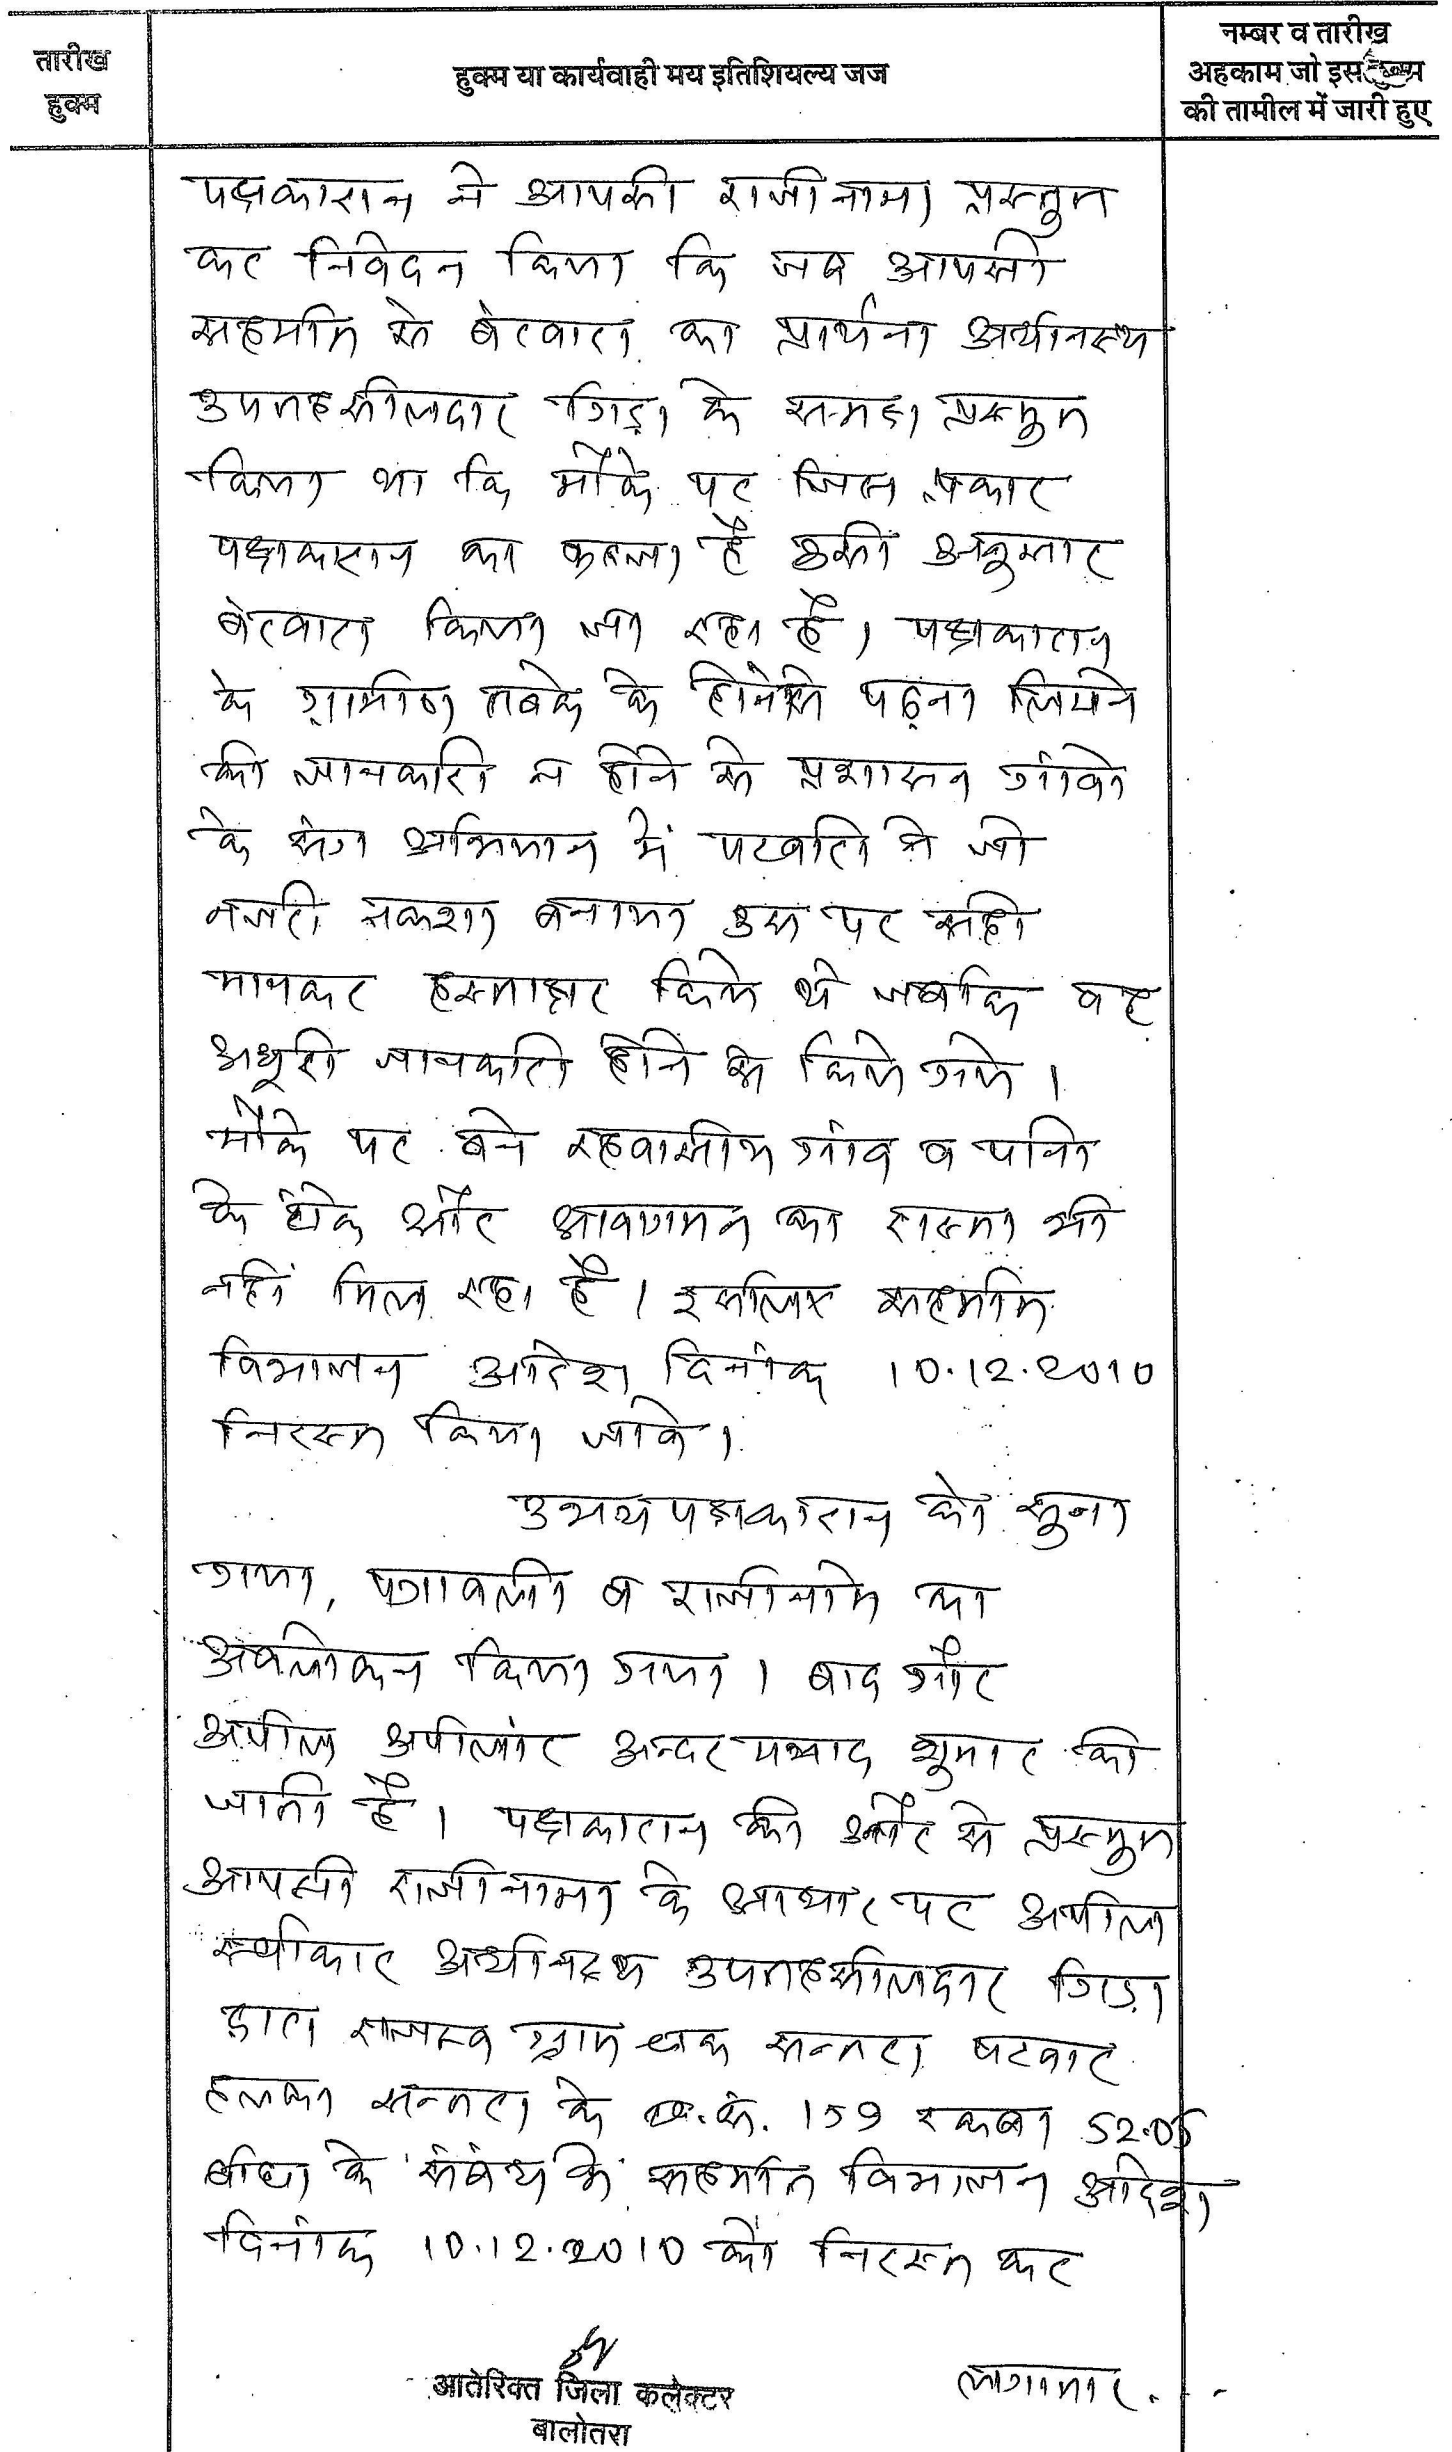 तारीख
हुक्म
हुक्म या कार्यवाही मय इतिशियल्य जज
नम्बर व तारीख
अहकाम जो इस हुक्म
की तामील में जारी हुए
पक्षकारान ने आपसी राजीनामा प्रस्तुत
कर निवेदन किया कि जब आपसी
सहमति से बंटवारा का प्रार्थना अधीनस्थ
उपतहसीलदार गिड़ा के समक्ष प्रस्तुत
किया था कि मौके पर जिस प्रकार
पक्षकारान का कब्जा है उसी अनुसार
बंटवारा किया जा रहा है। पक्षकारान
के ग्रामीण तबके के होने से पढ़ना लिखने
की जानकारी न होने से प्रशासन गांवो
के संग अभियान में पटवारी ने जो
नजरी नक्शा बनाया उस पर सही
मानकर हस्ताक्षर किये थे जबकि वह
अधूरी जानकारी होने से किये गये।
मौके पर बने रहवासीय गांव व पानी
के टांके और आवागमन का रास्ता भी
नहीं मिल रहा है। इसलिए सहमति
विभाजन आदेश दिनांक 10.12.2010
निरस्त किया जावे।
उभयपक्षकारान को सुना
गया, पत्रावली व राजीनामे का
अवलोकन किया गया। बाद गौर
अपील अपीलांट अन्दर मयाद शुमार की
जाती है। पक्षकारान की और से प्रस्तुत
आपसी राजीनामा के आधार पर अपील
स्वीकार अधीनस्थ उपतहसीलदार गिड़ा
द्वारा राजस्व ग्राम चक सन्तरा पटवार
हलका सन्तरा के ख.सं. 159 रकबा 52.05
बीघा के संबंध में सहमति विभाजन आदेश
दिनांक 10.12.2010 को निरस्त कर
लगातार..
आतेरिक्त जिला कलेक्टर
बालोतरा